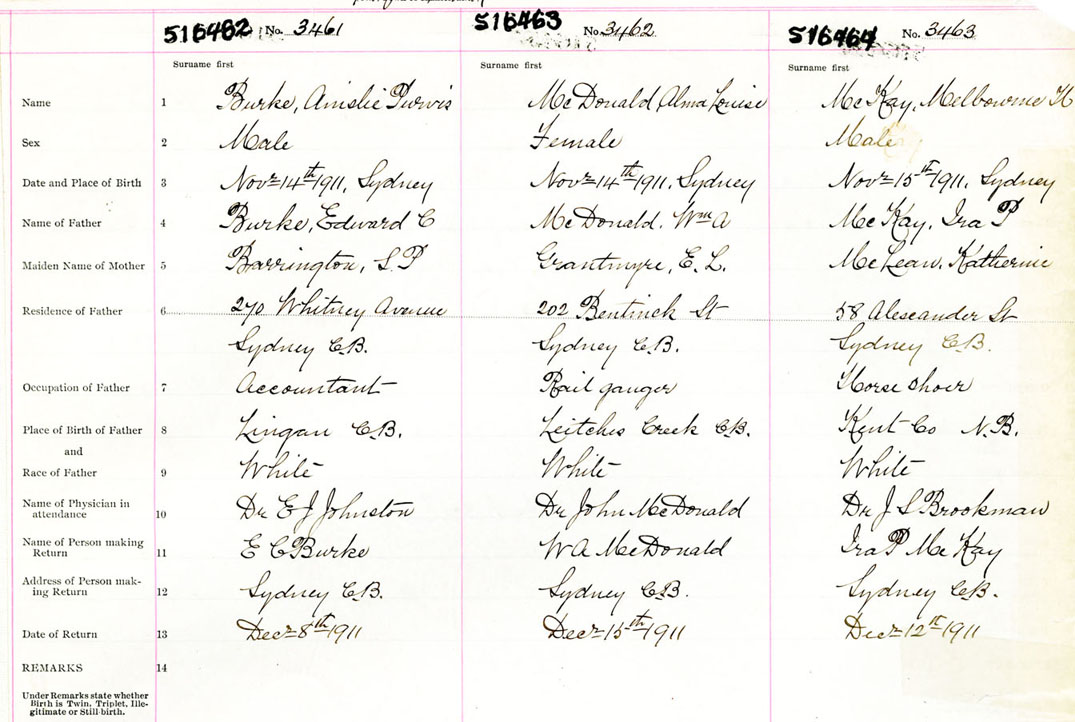 516462 No. 3461 516463 No. 3462 516464 No. 3463
Surname first Surname first Surname first
Name 1 Burke, Ainslie Purvis McDonald, Alma Louise McKay, Melbourne H
Sex 2 Male Female Male
Date and Place of Birth 3 Novr 14th 1911, Sydney Novr 14th 1911, Sydney Novr 15th 1911, Sydney
Name of Father 4 Burke, Edward C McDonald, Wm A McKay, Ira P
Maiden Name of Mother 5 Barrington, S. P Grantmyre, E. L. McLean, Katherine
Residence of Father 6 270 Whitney Avenue 202 Bentinck St 58 Alexander St
Sydney C.B. Sydney C.B. Sydney C.B.
Occupation of Father 7 Accountant Rail ganger Horse shoer
Place of Birth of Father 8 Lingan C.B. Leitches Creek C.B. Kent Co N.B.
and
Race of Father 9 White White White
Name of Physician in
attendance 10 Dr E J Johnston Dr John McDonald Dr J S Brookman
Name of Person making
Return 11 E C Burke W A McDonald Ira P McKay
Address of Person mak-
ing Return 12 Sydney C.B. Sydney C.B. Sydney C.B.
Date of Return 13 Decr 8th 1911 Decr 15th 1911 Decr 12th 1911
REMARKS 14
Under Remarks state whether
Birth is Twin, Triplet, Ille-
gitimate or Still-birth.